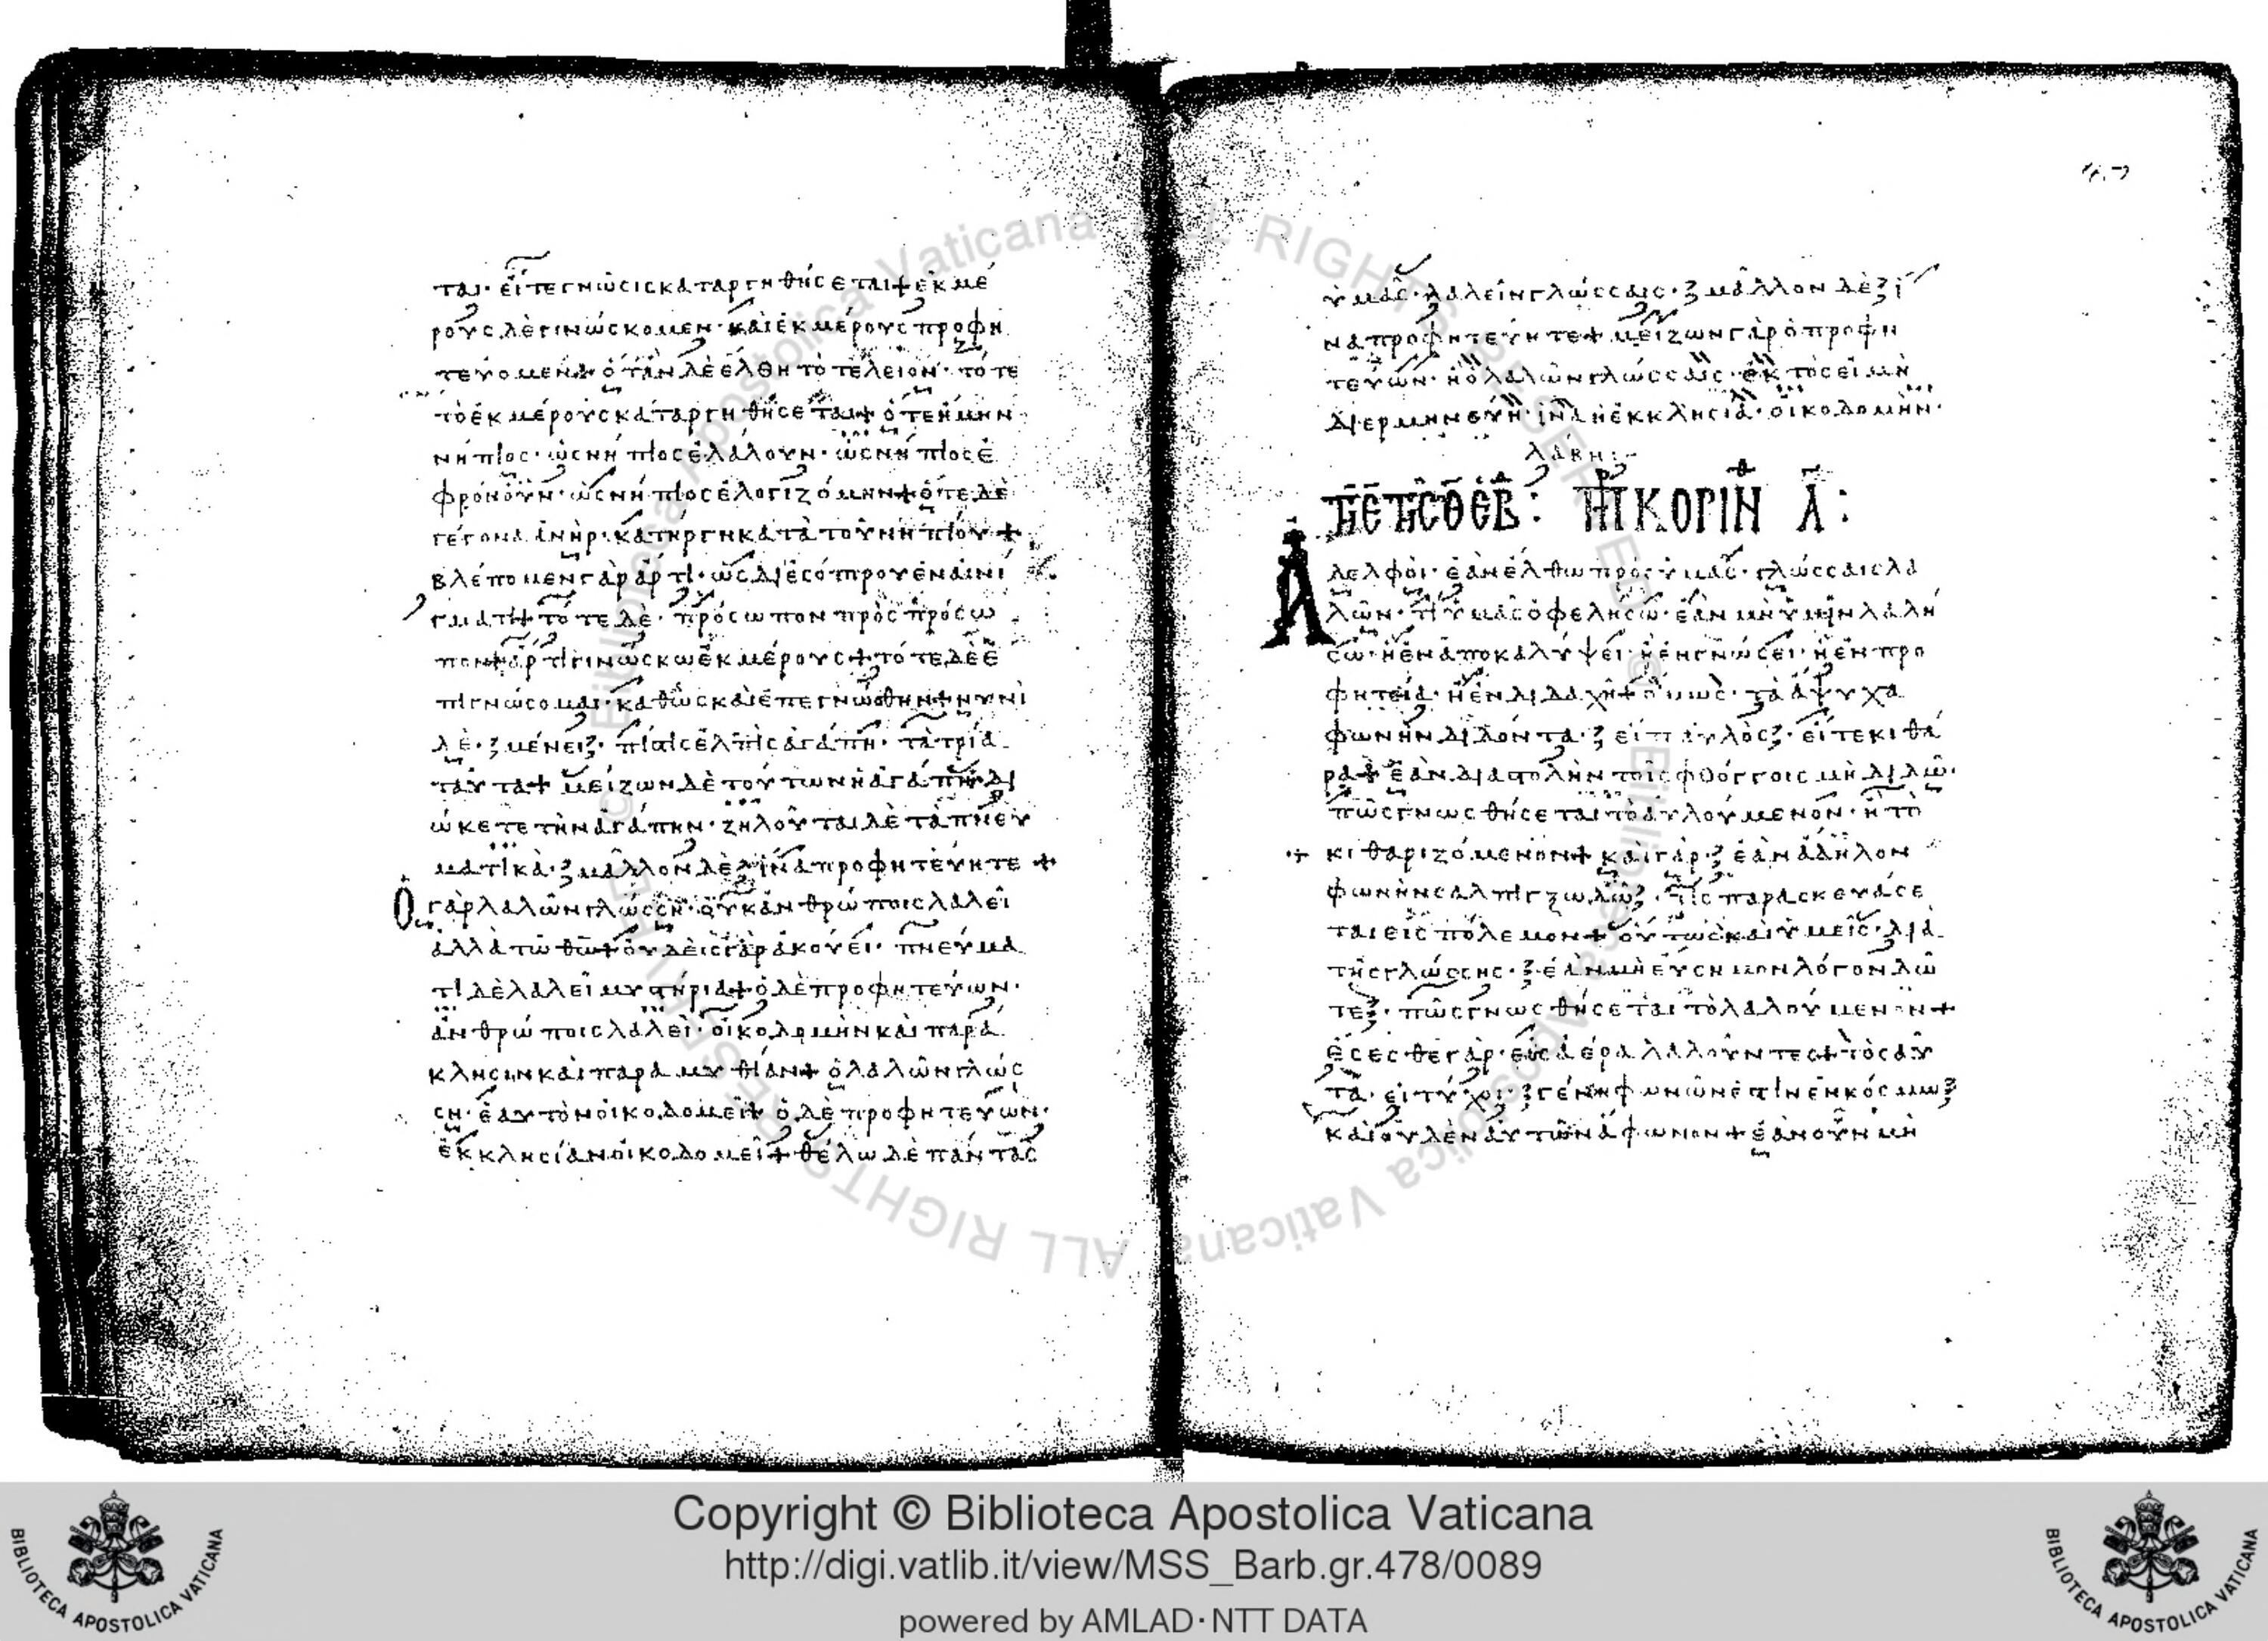 ται· εἴτε γνῶσις καταργηθήσεται + ἐκ μέ
ρους δὲ γινώσκομεν· καὶ ἐκ μέρους προφη
τεύομεν + ὅταν δὲ ἔλθη τὸ τέλειον· τότε
τὸ ἐκ μέρους καταργηθήσεται + ὅτε ἤμην
νήπιος· ὡς νήπιος ἐλάλουν· ὡς νήπιος ἐ
φρόνουν· ὡς νήπιος ἐλογιζόμην + ὅτε δὲ
γέγονα ἀνὴρ· κατήργηκα τὰ τοῦ νηπίου +
βλέπομεν γὰρ ἄρτι· ὡς δι' ἐσόπρου ἐν αἰνί
γματι + τότε δὲ· πρόσωπον πρὸς πρόσω
πον + ἄρτι γινώσκω ἐκ μέρους + τότε δὲ ἐ
πιγνώσομαι· καθὼς καὶ ἐπεγνώσθην + νυνὶ
δὲ· μένει· πίστις ἐλπὶς ἀγάπη· τὰ τρία
ταῦτα + μείζων δὲ τούτων ἡ ἀγάπη + δι
ώκετε τὴν ἀγάπην· ζηλοῦται δὲ τὰ πνευ
ματικὰ· μᾶλλον δὲ ἵνα προφητεύητε +
Ὁ γὰρ λαλῶν γλώσση· οὐκ ἀνθρώποις λαλεῖ
ἀλλὰ τῶ θω + οὐδεὶς γὰρ ἀκούει· πνεύμα
τι δὲ λαλεῖ μυστήρια + ὁ δὲ προφητεύων·
ἀνθρώποις λαλεῖ· οἰκοδομὴν καὶ παρά
κλησιν καὶ παραμυθίαν + ὁ λαλῶν γλώσ
ση· ἑαυτὸν οἰκοδομεῖ + ὁ δὲ προφητεύων·
ἐκκλησίαν οἰκοδομεῖ + θέλω δὲ πάντας
ὑμᾶς· λαλεῖν γλώσσαις· μᾶλλον δὲ ἵ
να προφητεύητε + μείζων γὰρ ὁ προφη
τεύων· ἢ ὁ λαλῶν γλώσσαις· ἐκτὸς εἰ μὴ
διερμηνεύη· ἵνα ἡ ἐκκλησία· οἰκοδομὴν·
λάβη:
ΚΟΡΙΝ Α:
Ἀδελφοὶ· ἐὰν ἔλθω πρὸς ὑμᾶς· γλώσσαις λα
λῶν· τί ὑμᾶς ὀφελήσω· ἐὰν μὴ ὑμῖν λαλή
σω· ἢ ἐν ἀποκαλύψει· ἢ ἐν γνώσει· ἢ ἐν προ
φητεία· ἢ ἐν διδαχῆ + ὅμως· τὰ ἄψυχα
φωνὴν διδόντα· εἴτε αὐλὸς· εἴτε κιθά
ρα + ἐὰν διαστολὴν τοῖς φθόγγοις μὴ διδῶ·
πῶς γνωσθήσεται τὸ αὐλούμενον· ἢ τὸ
κιθαριζόμενον + καὶ γάρ· ἐὰν ἄδηλον
φωνὴν σάλπιγξ δῶ· τίς παρασκευάσε
ται εἰς πόλεμον + οὕτως καὶ ὑμεῖς· διὰ
τῆς γλώσσης· ἐὰν μὴ εὔσημον λόγον δῶ
τε· πῶς γνωσθήσεται τὸ λαλούμενον +
ἔσεσθε γὰρ· εἰς ἀέρα λαλοῦντες + τοσαῦ
τα· εἰ τύχοι· γένη φωνῶν ἐστὶν ἐν κόσμω
καὶ οὐδὲν αὐτῶν ἄφωνον + ἐὰν οὖν μὴ
Copyright © Biblioteca Apostolica Vaticana
http://digi.vatlib.it/view/MSS_Barb.gr.478/0089
powered by AMLAD·NTT DATA
BIBLIOTECA APOSTOLICA VATICANA
BIBLIOTECA APOSTOLICA VATICANA